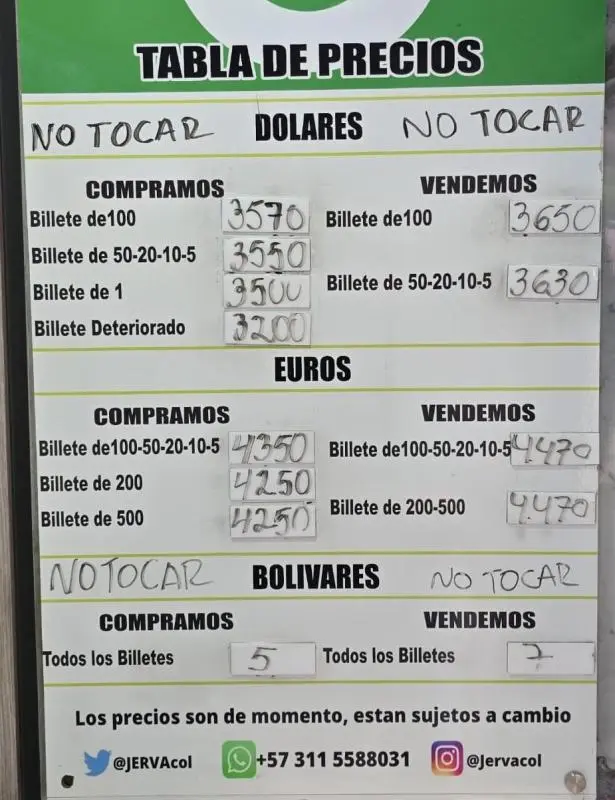 TABLA DE PRECIOS
NO TOCAR DOLARES NO TOCAR
COMPRAMOS VENDEMOS
Billete de100 3570 Billete de100 3650
Billete de 50-20-10-5 3550 Billete de 50-20-10-5 3630
Billete de 1 3500
Billete Deteriorado 3200
EUROS
COMPRAMOS VENDEMOS
Billete de100-50-20-10-5 4350 Billete de100-50-20-10-5 4470
Billete de 200 4250 Billete de 200-500 4.470
Billete de 500 4250
NO TOCAR BOLIVARES NO TOCAR
COMPRAMOS VENDEMOS
Todos los Billetes 5 Todos los Billetes 7
Los precios son de momento, estan sujetos a cambio
@JERVAcol +57 311 5588031 @Jervacol